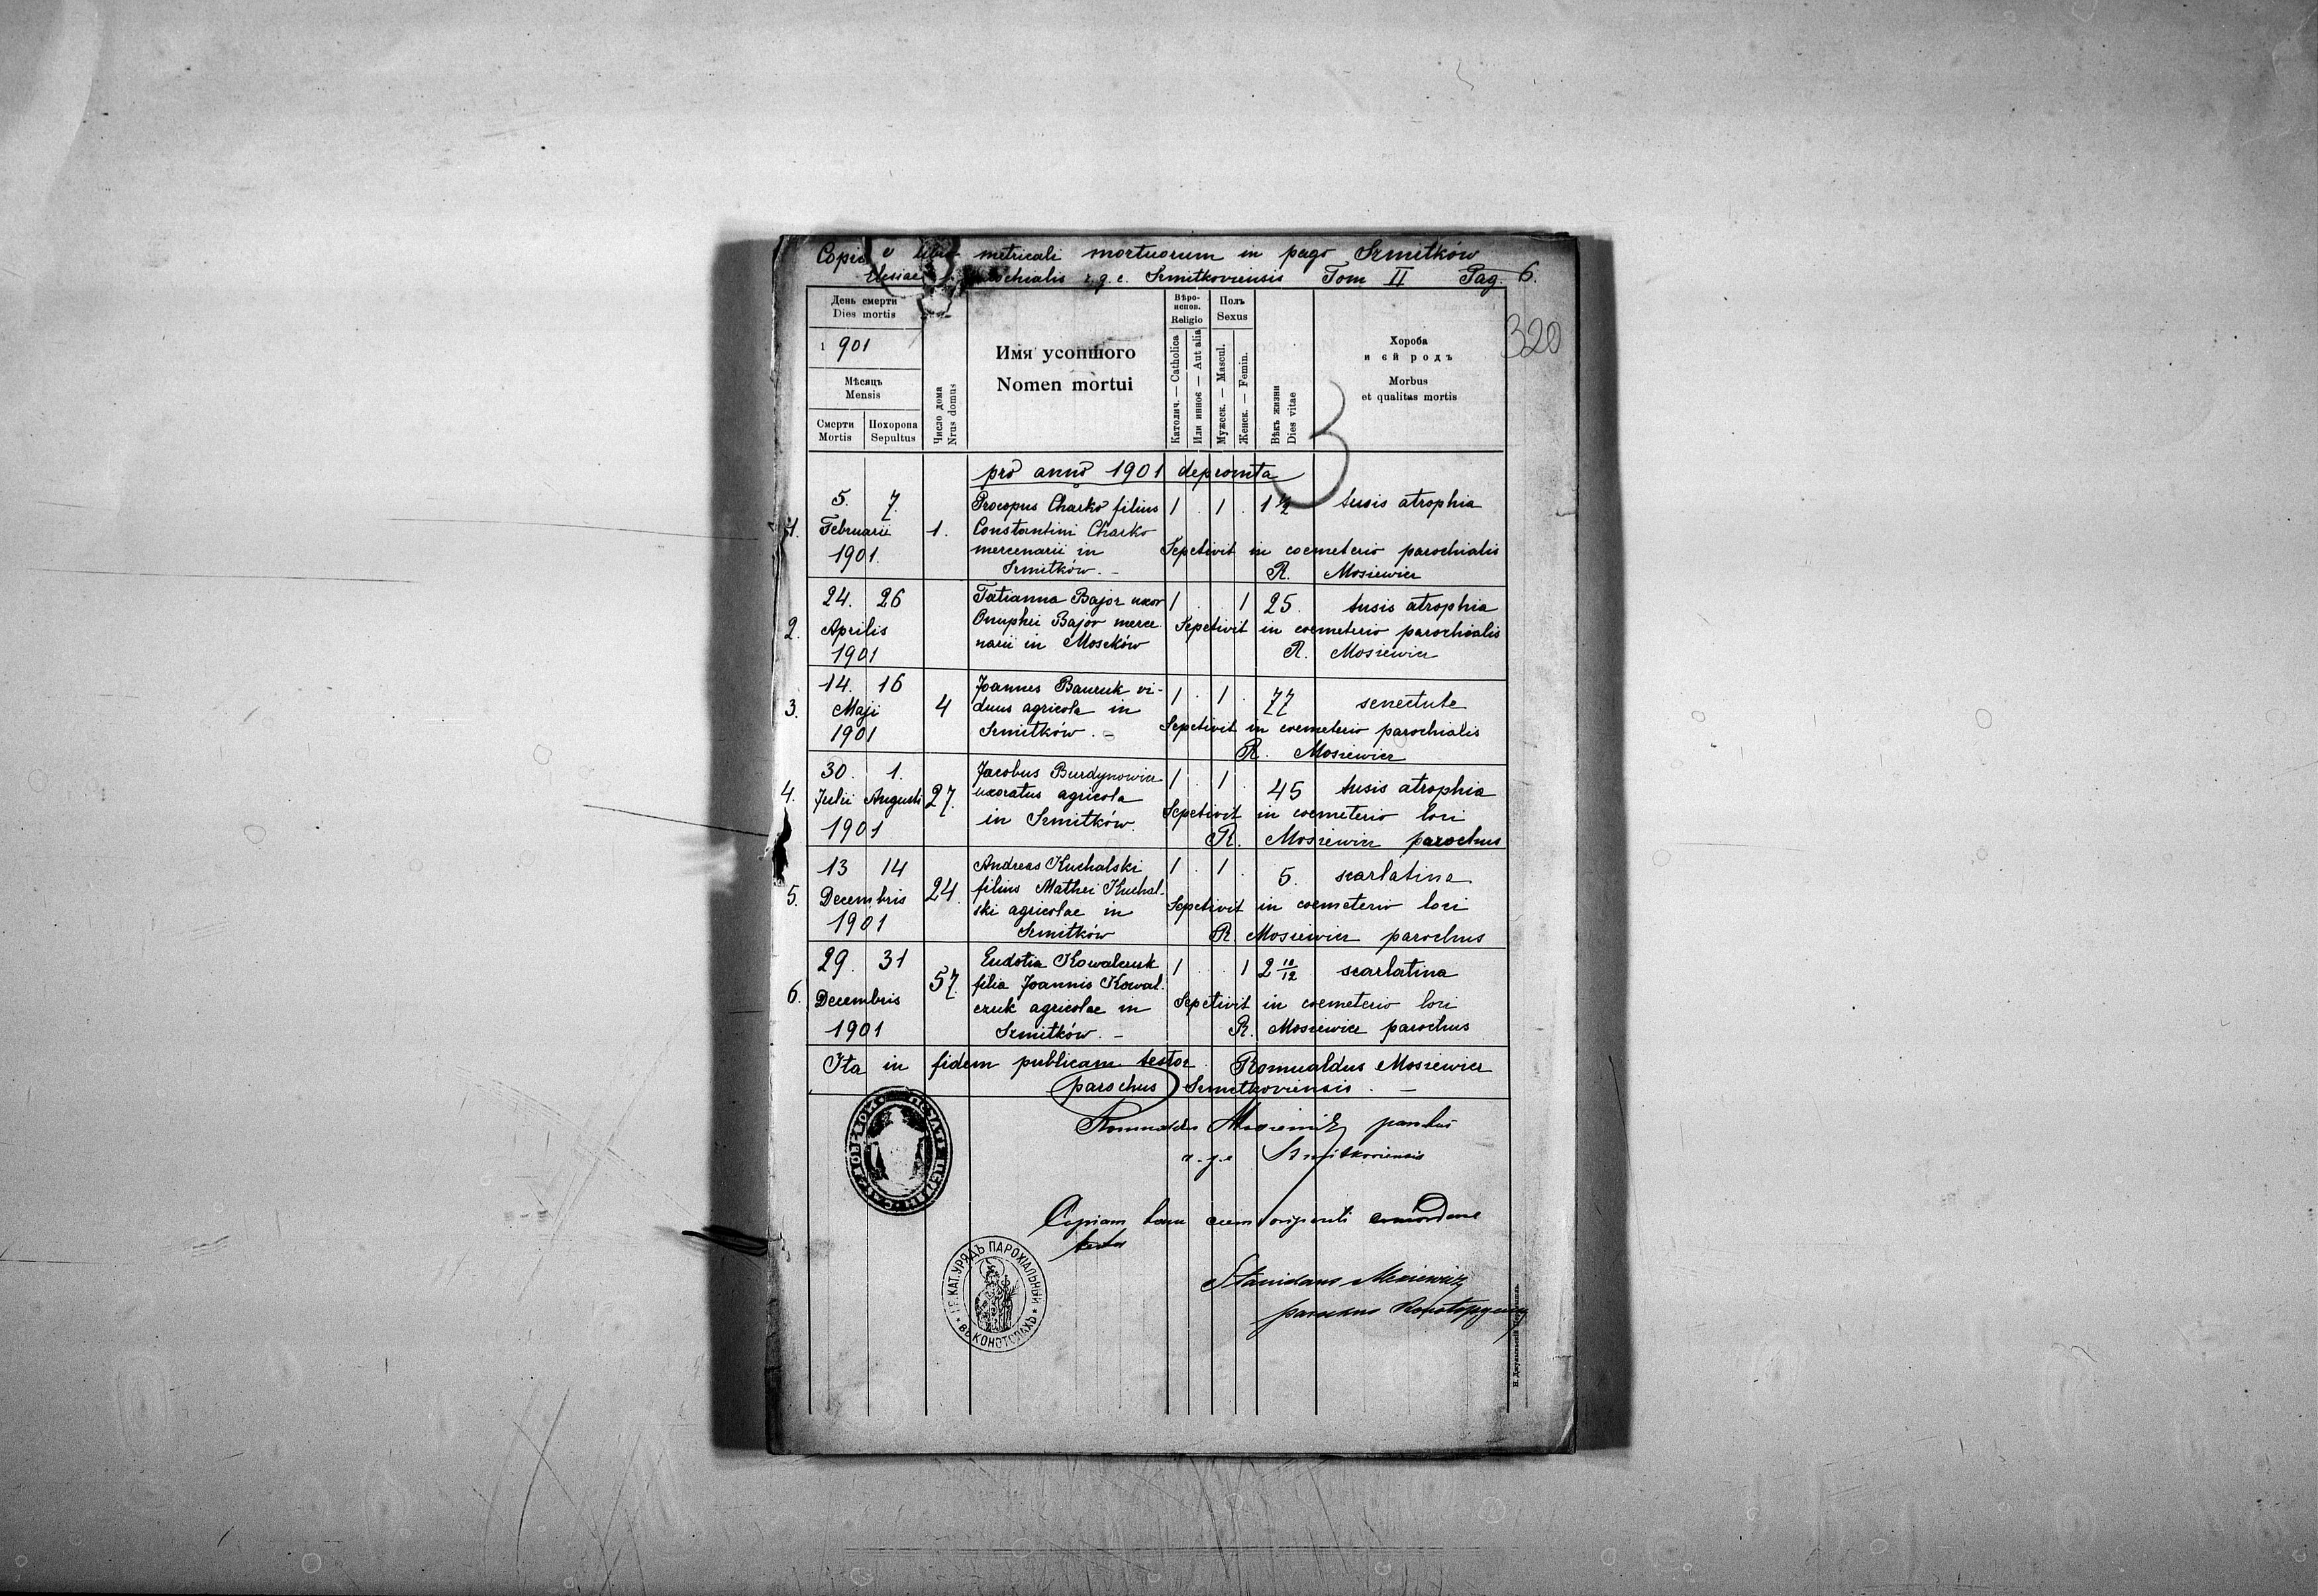 Copia e libro metricali mortuorum in pago Szmitków
eclesiae parochialis r. g. c. Szmitkoviensis Tom II Pag. 6.
320
День смерти
Dies mortis
1901
Мѣсяць
Mensis
Смерти Похорона
Mortis Sepultus
Число дома
Nrus domus
Имя усопшого
Nomen mortui
Вѣро-
испов.
Religio
Католич. — Catholica
Или инноє — Aut alia
Полъ
Sexus
Мужеск. — Mascul.
Женск. — Femin.
Вѣкъ жизни
Dies vitae
Хороба
и єй родъ
Morbus
et qualitas mortis
3
pro anno 1901 depromta
5. 7. Procopus Charko filius 1 . 1 . 1 ½ tusis atrophia
1. Februarii 1. Constantini Charko
1901. mercenarii in Sepelivit in coemeterio parochialis
Szmitków. – R. Mosiewicz
24. 26 Tatianna Bajor uxor 1 . . 1 25. tusis atrophia
2. Aprilis Onuphri Bajor merce- Sepelivit in coemeterio parochialis
1901 narii in Moszków R. Mosiewicz
14. 16 Joannes Baucuk vi- 1 . 1 . 77 senectute
3. Maji 4 duus agricola in
1901 Szmitków. – Sepelivit in coemeterio parochialis
R. Mosiewicz
30. 1. Jacobus Burdynowicz 1 . 1 . 45 tusis atrophia
4. Julii Augusti 27. uxoratus agricola Sepelivit in coemeterio loci
1901 in Szmitków. R. Mosiewicz parochus
13 14 Andreas Kuchalski 1 . 1 . 5. scarlatina
5. Decembris 24. filius Mathei Kuchal-
1901 ski agricolae in Sepelivit in coemeterio loci
Szmitków R. Mosiewicz parochus
29. 31 Eudotia Kowalczuk 1 . . 1 2 10/12 scarlatina
6. Decembris 57. filia Joannis Kowal-
czuk agricolae in Sepelivit in coemeterio loci
1901 Szmitków. – R. Mosiewicz parochus
Ita in fidem publicam testor Romualdus Mosiewicz
parochus Szmitkoviensis. –
Romualdus Mosiewicz parochus
r. g. c. Szmitkoviensis
Copiam hanc cum originali concordare
testor
Stanislaus Mosiewicz
parochus
ГР. КАТ. УРЯДЪ ПАРОХІАЛЬНЫЙ
ВЪ КОНОТОПАХЪ